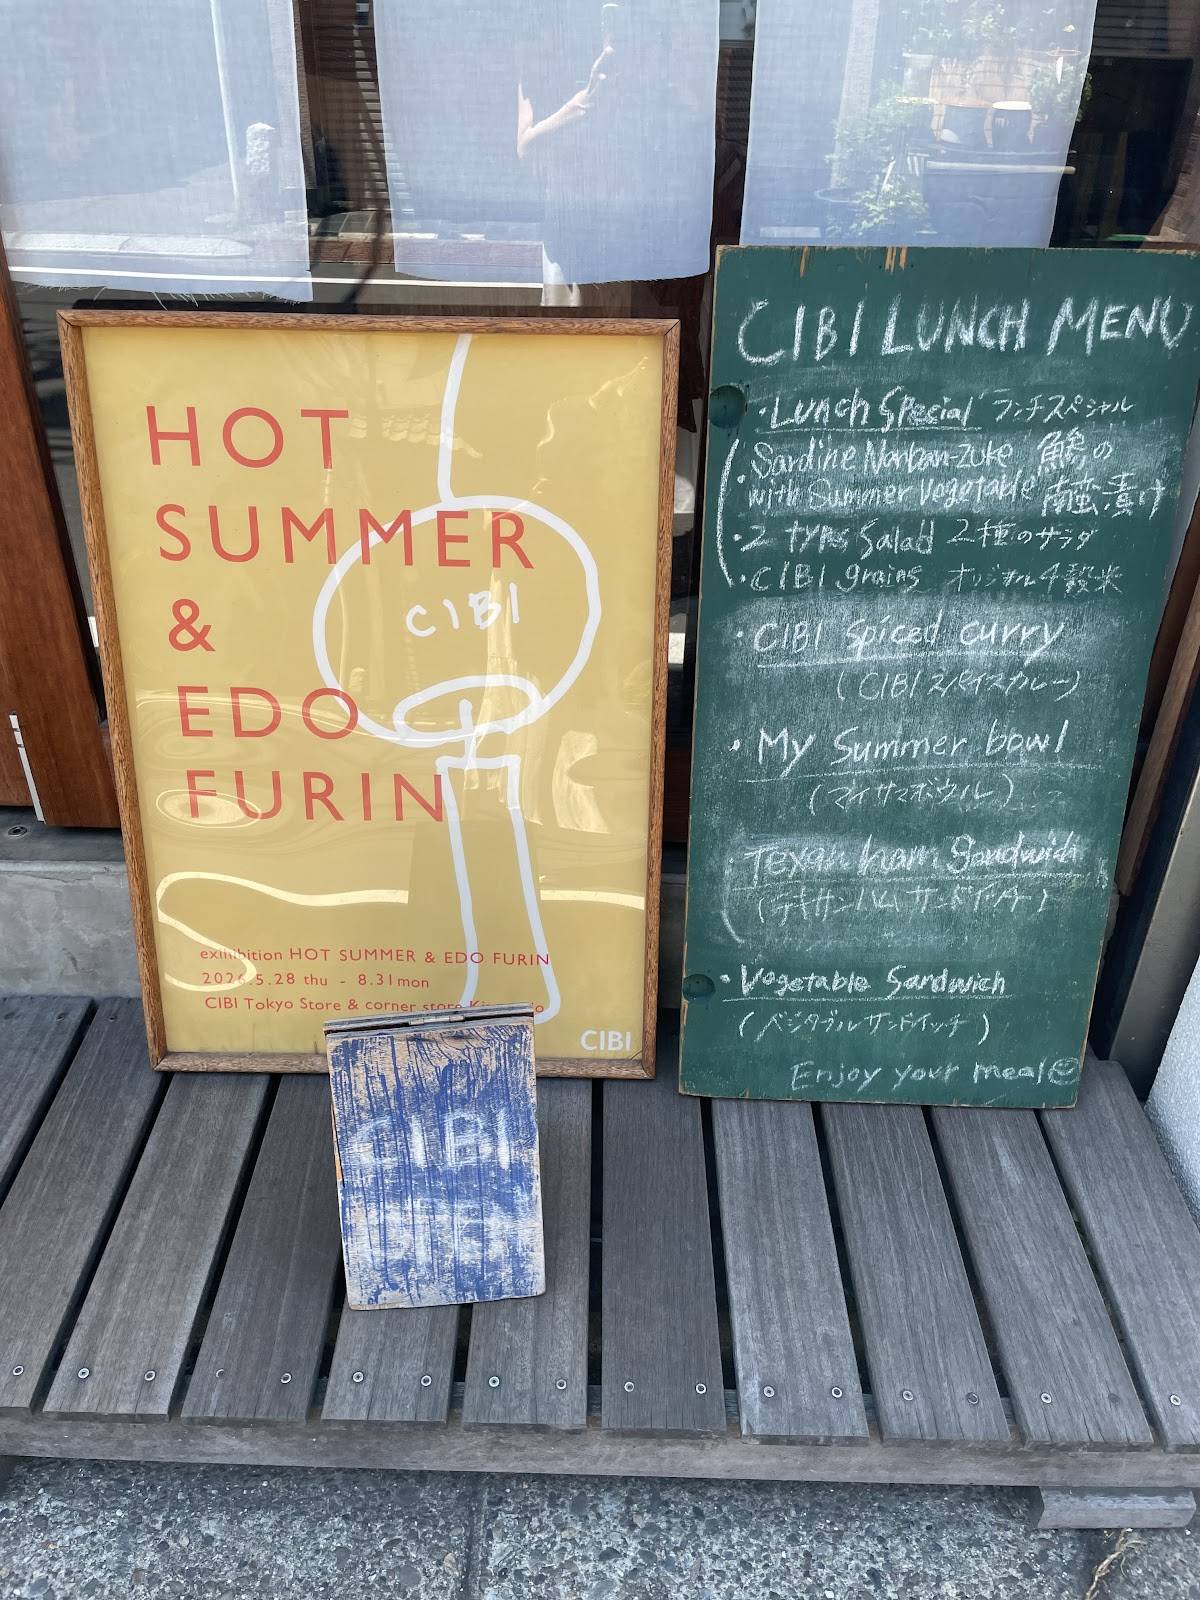 HOT
SUMMER
&
EDO
FURIN
CIBI
exihibition HOT SUMMER & EDO FURIN
2026.5.28 thu - 8.31mon
CIBI Tokyo Store & corner store
CIBI
CIBI
CIBI LUNCH MENU
・Lunch Special ランチスペシャル
・Sardine Nanban-zuke 鰯の
with Summer Vegetable 南蛮漬け
・2 types Salad 2種のサラダ
・CIBI grains オリジナル4穀米
・CIBI Spiced curry
(CIBIスパイスカレー)
・My Summer bowl
(マイサマーボウル)
Texan ham Sandwich
(テキサンハムサンドイッチ)
・Vegetable Sandwich
(ベジタブルサンドイッチ)
Enjoy your meal☺